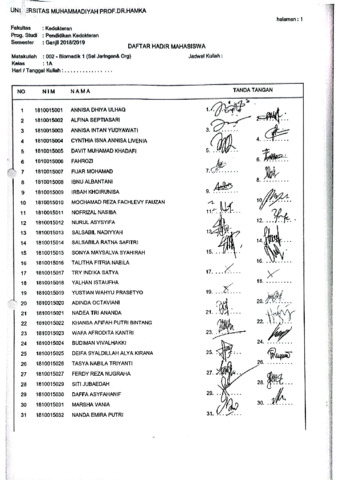 UNIVERSITAS MUHAMMADIYAH PROF.DR.HAMKA
halaman : 1
Fakultas : Kedokteran
Prog. Studi : Pendidikan Kedokteran
Semester : Ganjil 2018/2019
DAFTAR HADIR MAHASISWA
Matakuliah : 002 - Biomedik 1 (Sel Jaringan& Org) Jadwal Kuliah :
Kelas : 1A
Hari / Tanggal Kuliah : . . . . . . . . . . . . .
NO NIM NAMA TANDA TANGAN
1 1810015001 ANNISA DHIYA ULHAQ 1.
2 1810015002 ALFINA SEPTIASARI 2.
3 1810015003 ANNISA INTAN YUDYAWATI 3.
4 1810015004 CYNTHIA ISNA ANNISA LIVENIA 4.
5 1810015005 DAVIT MUHAMAD KHADAFI 5.
6 1810015006 FAHROZI 6.
7 1810015007 FIJAR MOHAMAD 7.
8 1810015008 IBNU ALBANTANI 8.
9 1810015009 IRBAH KHOIRUNISA 9.
10 1810015010 MOCHAMAD REZA FACHLEVY FAUZAN 10.
11 1810015011 NOFRIZAL NABIBA 11.
12 1810015012 NURUL ASYSYIFA 12.
13 1810015013 SALSABIL NADIYYAH 13.
14 1810015014 SALSABILA RATNA SAFITRI 14.
15 1810015015 SONYA MAYSALVA SYAHIRAH 15.
16 1810015016 TALITHA FITRIA NABILA 16.
17 1810015017 TRY INDIKA SATYA 17.
18 1810015018 YALHAN ISTAUFHA 18.
19 1810015019 YUSTIAN WAHYU PRASETYO 19.
20 1810015020 ADINDA OCTAVIANI 20.
21 1810015021 NADEA TRI ANANDA 21.
22 1810015022 KHANSA AFIFAH PUTRI BINTANG 22.
23 1810015023 WAFA AFRODITA KANTRI 23.
24 1810015024 BUDIMAN VIVALHAKKI 24.
25 1810015025 DEIFA SYALDILLAH ALYA KIRANA 25.
26 1810015026 TASYA NABILA TRIYANTI 26.
27 1810015027 FERDY REZA NUGRAHA 27.
28 1810015029 SITI JUBAEDAH 28.
29 1810015030 DAFFA ASYFAHANIF 29.
30 1810015031 MARSHA VANIA 30.
31 1810015032 NANDA EMIRA PUTRI 31.